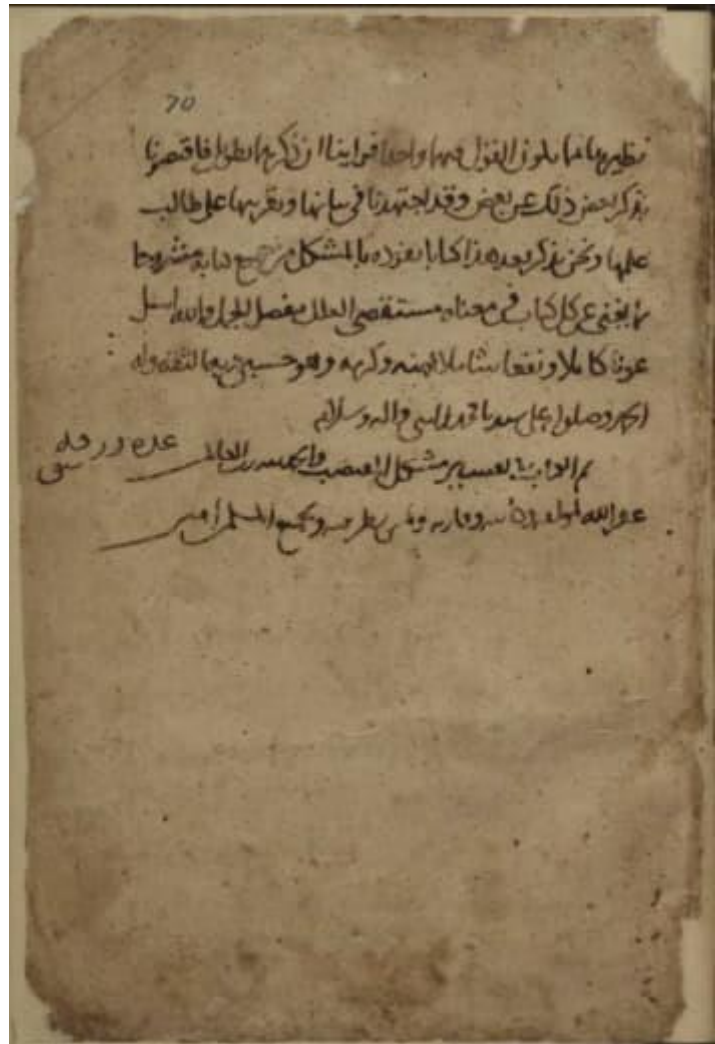 70
نظيرها مما يكون القول فيها واحدا فراينا ان ذكرها يطول فاقتصرنا
بذكر بعض ذلك عن بعض وقد اجتهدنا في بيانها وتقريبها على طالب
علمها ونحن نذكر بعد هذا كتابا نفرده بالمشكل من جميع مشروحا
يغني عن كل كتاب في معناه مستقصى العلل مفصل الجمل والله اسل
عونا كاملا ونفعا شاملا بمنه وكرمه وهو حسبي
وصلواته على سيدنا محمد النبي واله وسلامه
تم تفسير مشكل المقتضب والحمد لله رب العالمين
عدد ورقه
غفر الله وقاريه ولجميع المسلمين امين